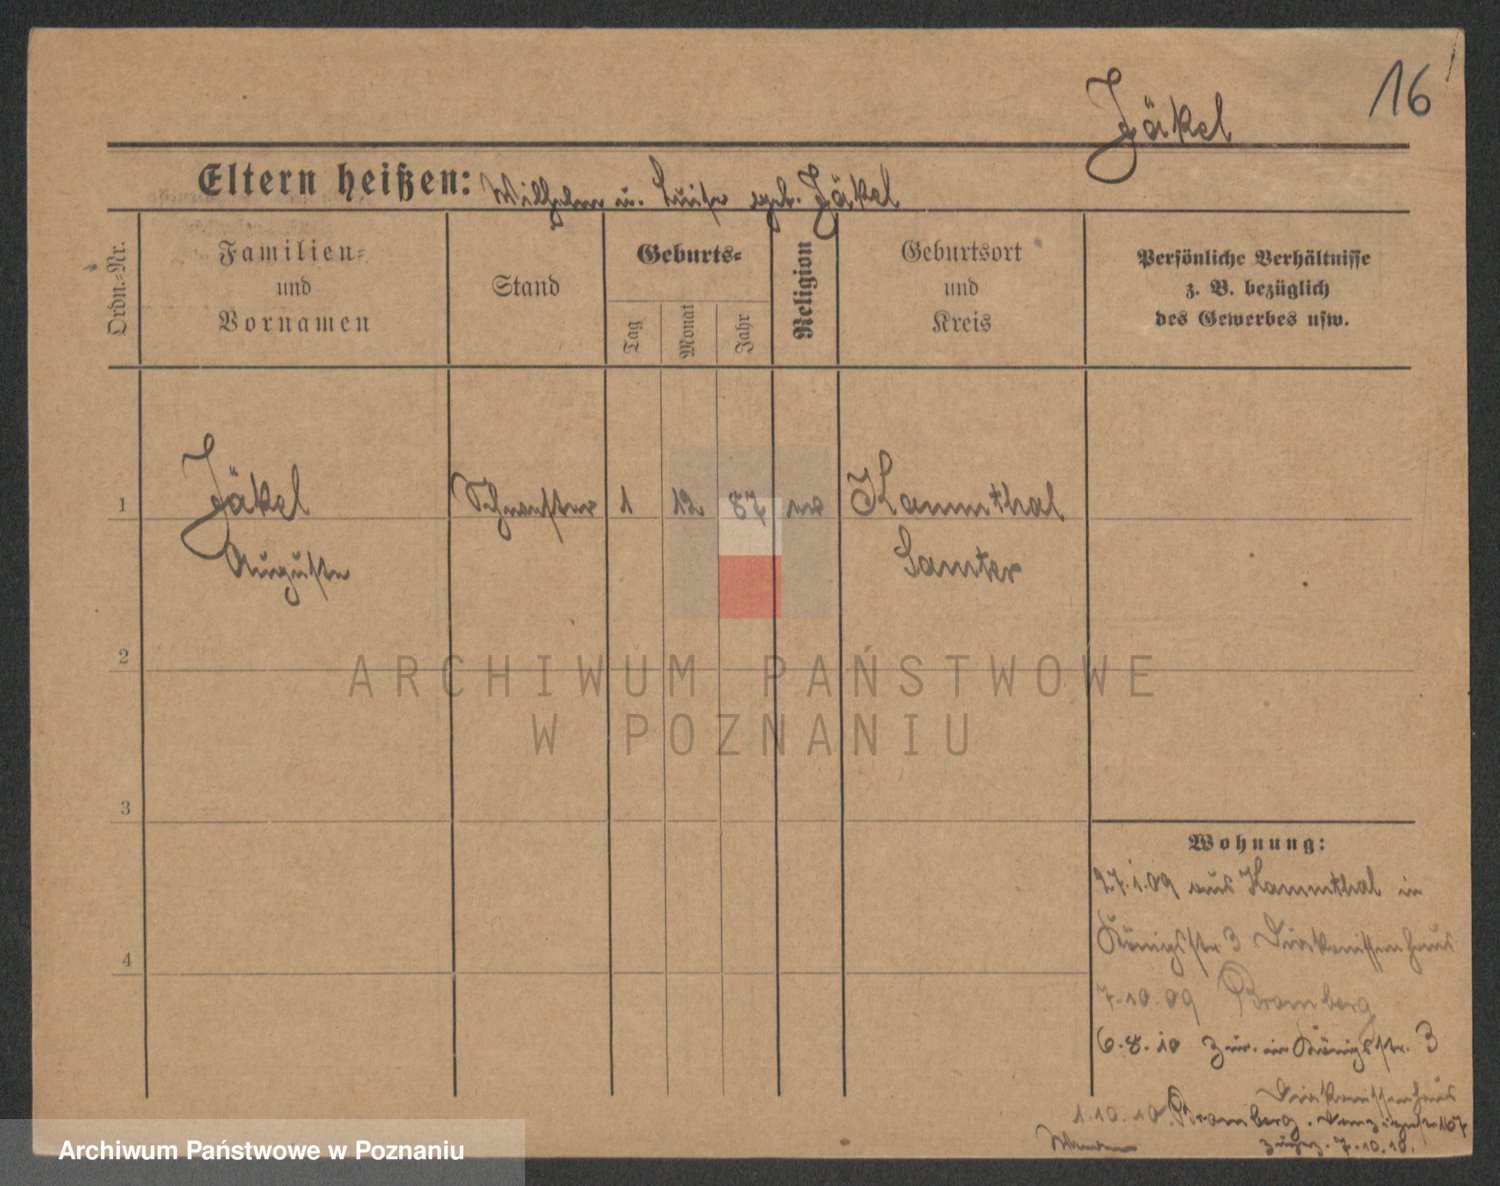 16
Jäkel
Eltern heißen: Wilhelm u. Luise geb. Jäkel
Ordn.-Nr.
Familien-
und
Vornamen
Stand
Geburts-
Tag
Monat
Jahr
Religion
Geburtsort
und
Kreis
Persönliche Verhältnisse
z. B. bezüglich
des Gewerbes usw.
1 Jäkel Schwester 1 12 87 Kammthal
Auguste Samter
2
ARCHIWUM PAŃSTWOWE
W POZNANIU
3
4
Wohnung:
27.1.09 aus Kammthal in
Königsstr 3 Diakonissenhaus
7.10.09 Bromberg
6.8.10 zur. in Königsstr. 3
Diakonissenhaus
1.10.10 Bromberg.
7.10.10.
Archiwum Państwowe w Poznaniu